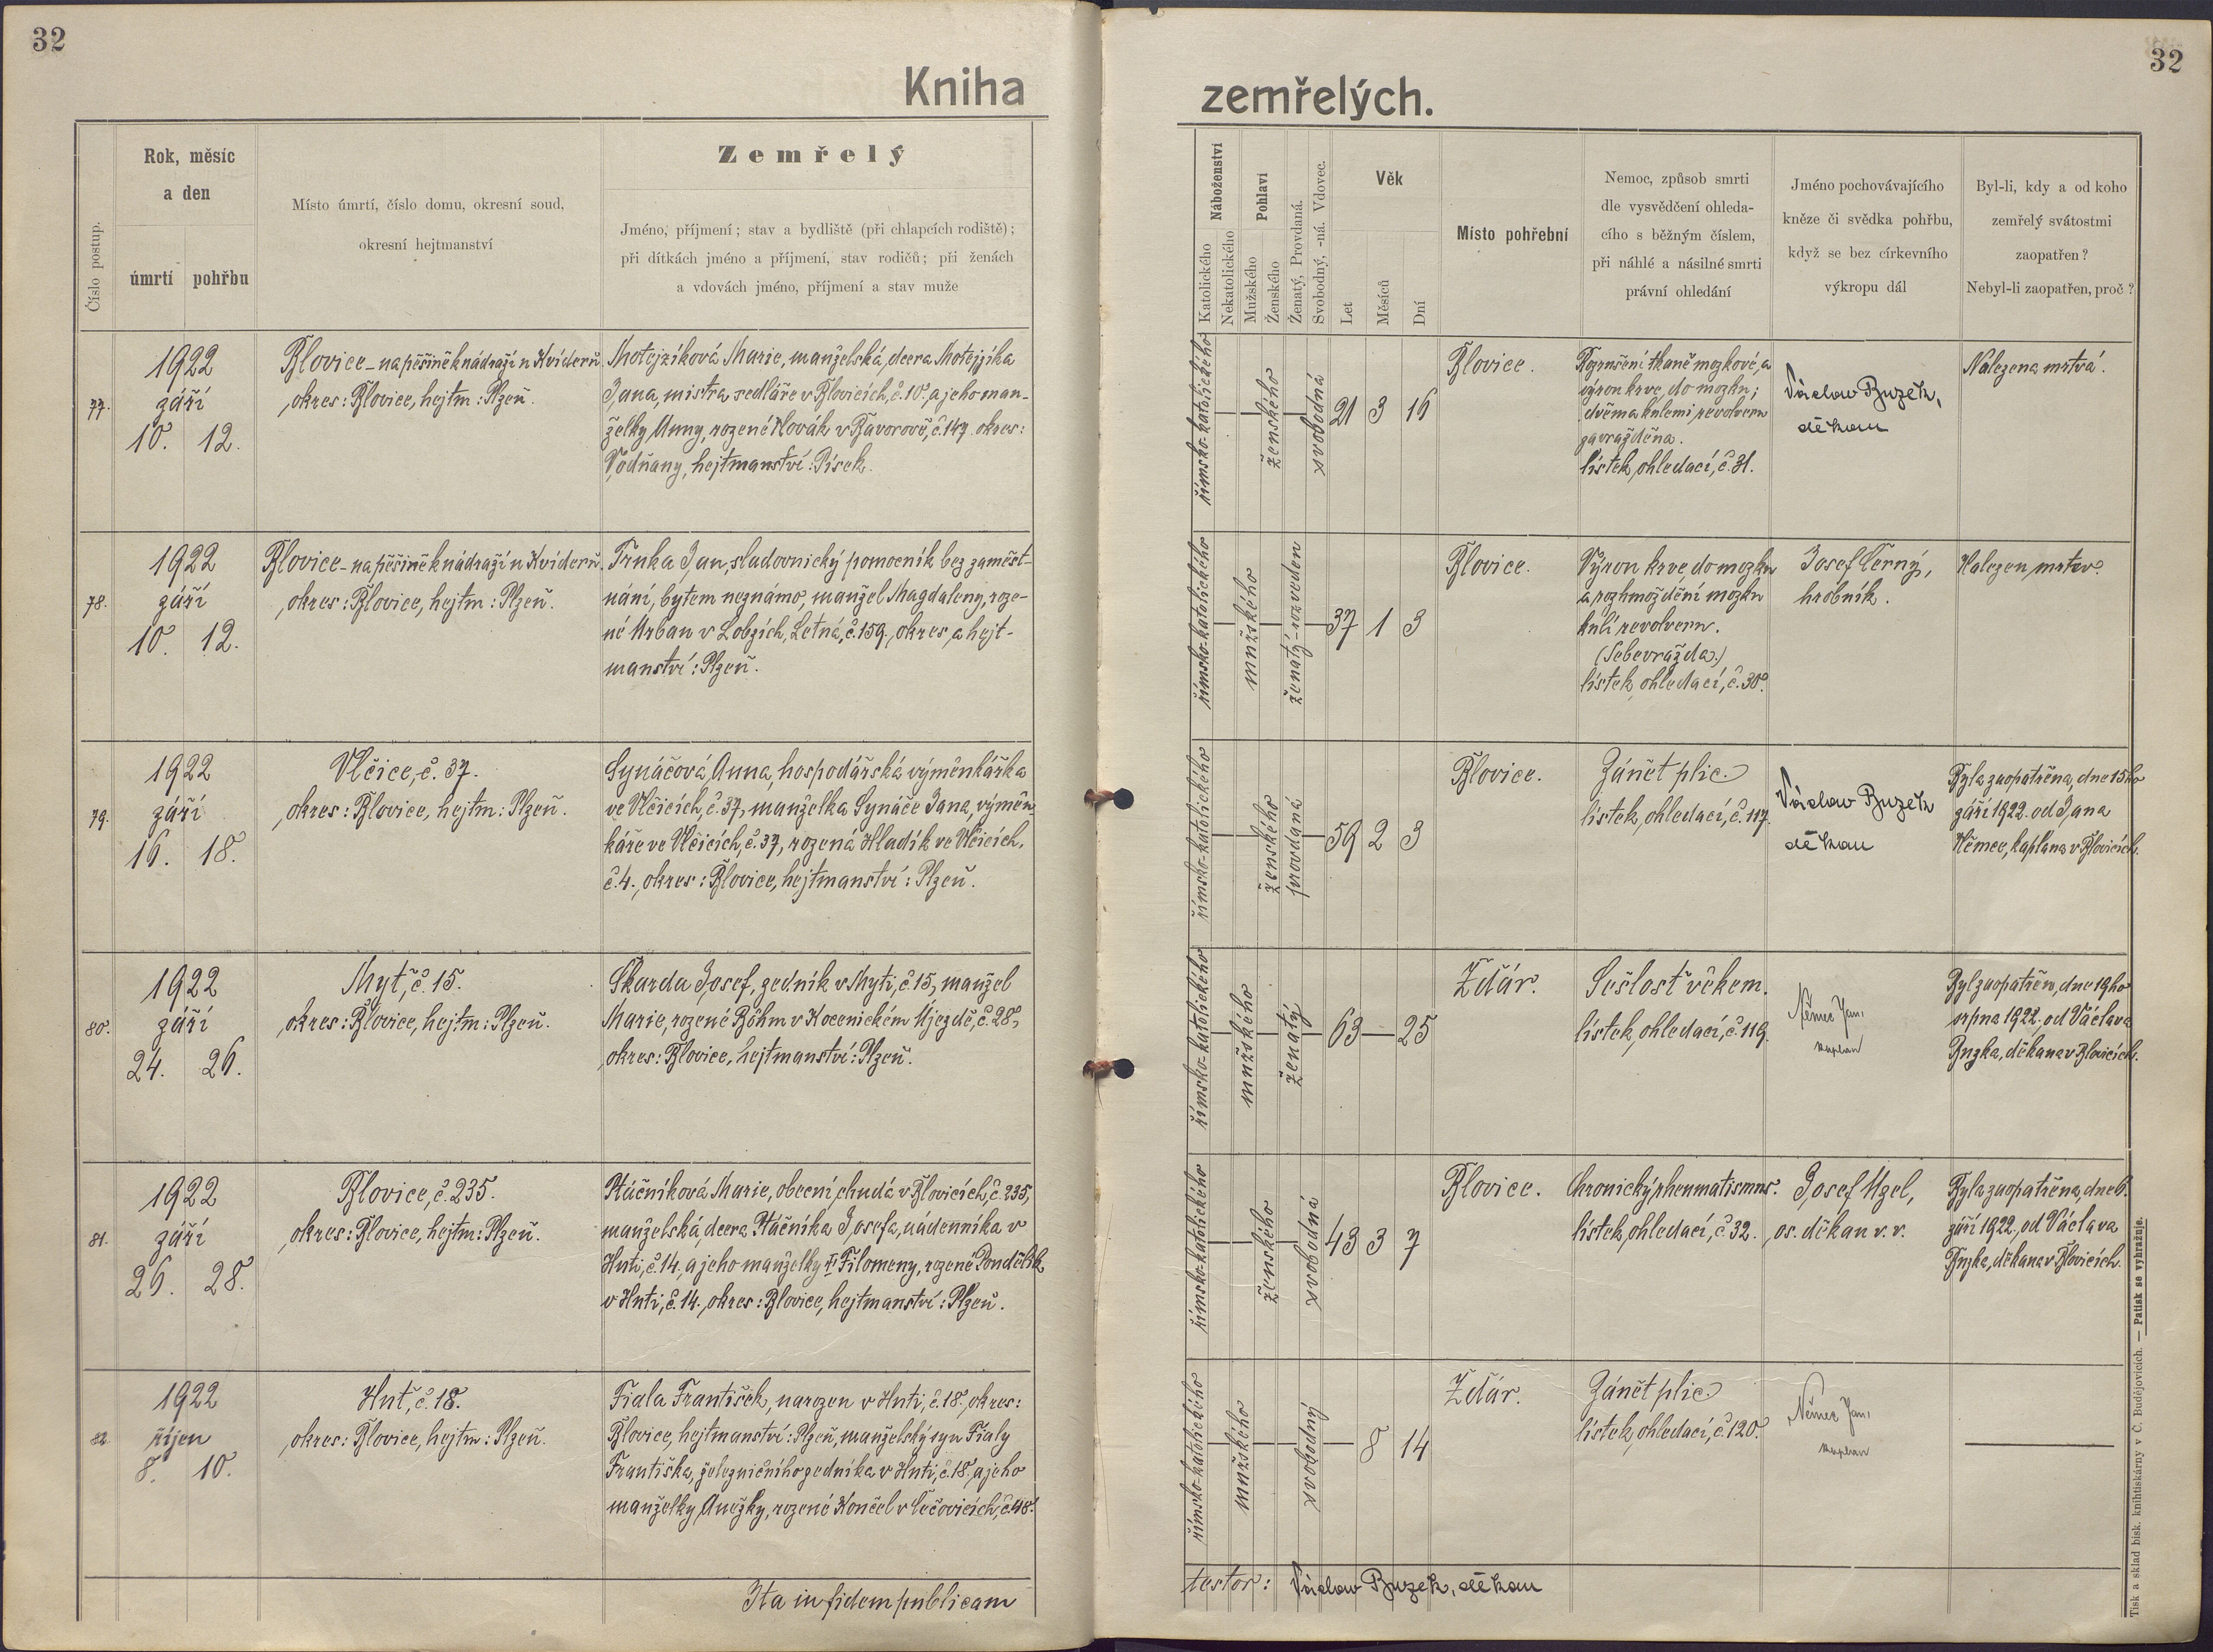 32
32
Kniha
zemřelých.
Číslo postup.
Rok, měsíc
a den
úmrtí pohřbu
Místo úmrtí, číslo domu, okresní soud,
okresní hejtmanství
Zemřelý
Jméno, příjmení; stav a bydliště (při chlapcích rodiště);
při dítkách jméno a příjmení, stav rodičů; při ženách
a vdovách jméno, příjmení a stav muže
Náboženství
Katolického
Nekatolického
Pohlaví
Mužského
Ženského
Ženatý, Provdaná.
Svobodný, -ná. Vdovec.
Věk
Let
Měsíců
Dní
Místo pohřební
Nemoc, způsob smrti
dle vysvědčení ohleda-
cího s běžným číslem,
při náhlé a násilné smrti
právní ohledání
Jméno pochovávajícího
kněze či svědka pohřbu,
když se bez církevního
výkropu dál
Byl-li, kdy a od koho
zemřelý svátostmi
zaopatřen?
Nebyl-li zaopatřen, proč?
77.
1922
září
10. 12.
Blovice - na pěšině k nádraží u Kvíderů
okres: Blovice, hejtm: Plzeň.
Motejzíková Marie, manželská dcera Motejzíka
Jana, mistra sedláře v Blovicích, č. 10. a jeho man-
želky Anny, rozené Novák v Bavorově, č. 147. okres:
Vodňany, hejtmanství: Písek.
římsko-katolického
ženského
svobodná
21 3 16
Blovice.
Rozrušení tkaně mozkové, a
výron krve do mozku;
dvěma kulemi revolveru
zavražděna.
lístek ohledací, č. 31.
Václav Buzek,
děkan
Nalezena mrtvá.
78.
1922
září
10. 12.
Blovice - na pěšině k nádraží u Kvíderů.
okres: Blovice, hejtm: Plzeň.
Trnka Jan, sladovnický pomocník bez zaměst-
nání, bytem neznámo, manžel Magdaleny, roze-
né Urban v Lobzích, Letná, č. 159., okres a hejt-
manství: Plzeň.
římsko-katolického
mužského
ženatý - rozveden
37 1 3
Blovice.
Výron krve do mozku
a rozhmoždění mozku
kulí revolveru.
(Sebevražda.)
lístek ohledací, č. 30.
Josef Černý,
hrobník.
Nalezen mrtev.
79.
1922
září
16. 18.
Vlčice, č. 37.
okres: Blovice, hejtm: Plzeň.
Synáčová Anna, hospodářská výměnkářka
ve Vlčicích, č. 37, manželka Synáče Jana, výměn-
káře ve Vlčicích, č. 37, rozená Hladík ve Vlčicích,
č. 4., okres: Blovice, hejtmanství: Plzeň.
římsko-katolického
ženského
provdaná
59 2 3
Blovice.
Zánět plic.
lístek ohledací, č. 117.
Václav Buzek
děkan
Byla zaopatřena, dne 15ho
září 1922. od Jana
Němec, kaplana v Blovicích.
80.
1922
září
24. 26.
Myť, č. 15.
okres: Blovice, hejtm: Plzeň.
Škarda Josef, zedník v Myti, č. 15, manžel
Marie, rozené Böhm v Kocenickém Újezdě, č. 28,
okres: Blovice, hejtmanství: Plzeň.
římsko-katolického
mužského
ženatý
63 — 25
Ždár.
Sešlosť věkem.
lístek ohledací, č. 119.
Němec Jan,
kaplan
Byl zaopatřen, dne 19ho
srpna 1922. od Václava
Buzka, děkana v Blovicích.
81.
1922
září
26. 28.
Blovice, č. 235.
okres: Blovice, hejtm: Plzeň.
Ptáčníková Marie, obecní chudá v Blovicích, č. 235,
manželská dcera Ptáčníka Josefa, nádenníka v
Huti, č. 14, a jeho manželky II Filomeny, rozené Pondělík
v Huti, č. 14., okres: Blovice, hejtmanství: Plzeň.
římsko-katolického
ženského
svobodná
43 3 7
Blovice.
Chronický rheumatismus.
lístek ohledací, č. 32.
Josef Uzel,
os. děkan v. v.
Byla zaopatřena, dne 6.
září 1922, od Václava
Buzka, děkana v Blovicích.
82.
1922
říjen
8. 10.
Huť, č. 18.
okres: Blovice, hejtm: Plzeň.
Fiala František, narozen v Huti, č. 18., okres:
Blovice, hejtmanství: Plzeň, manželský syn Fialy
Františka, železničního zedníka v Huti, č. 18. a jeho
manželky Anežky, rozené Končel v Čečovicích, č. 48.
římsko-katolického
mužského
svobodný
— 8 14
Ždár.
Zánět plic.
lístek ohledací, č. 120.
Němec Jan,
kaplan
Ita in fidem publicam
testor: Václav Buzek, děkan
Tisk a sklad bisk. knihtiskárny v Č. Budějovicích. — Patisk se vyhražuje.